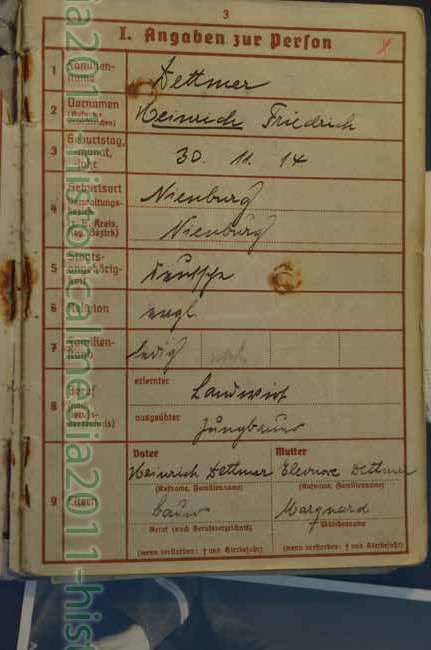 3
I. Angaben zur Person
1 Familien-
name
Dettmer
2 Vornamen
Heinrich Friedrich
3 Geburtstag,
monat,
jahr
30. 11. 14
4 Geburtsort
Nienburg
Nienburg
5 Staats-
angehörig-
keit
deutsche
6 Religion
evgl.
7 Familien-
stand
ledig
8 Beruf
erlernter
Landwirt
ausgeübter
Jungbauer
9 Eltern
Vater
Heinrich Dettmer
(Rufname, Familienname)
Bauer
Beruf (nach Berufsverzeichnis)
(wenn verstorben: † und Sterbejahr)
Mutter
Eleonore Dettmer
(Rufname, Familienname)
Marquard
Mädchenname
(wenn verstorben: † und Sterbejahr)
ia2011-historicalmedia2011-hist